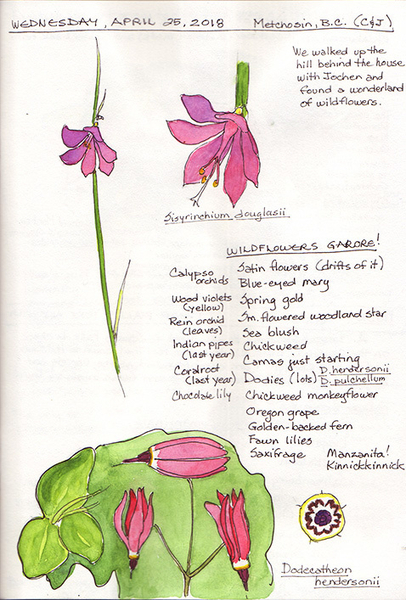 WEDNESDAY, APRIL 25, 2018 Metchosin, B.C. (C&J)
We walked up the
hill behind the house
with Jochen and
found a wonderland
of wildflowers.
Sisyrinchium douglasii
WILDFLOWERS GALORE!
Calypso
orchids
Wood violets
(yellow)
Rein orchid
(leaves)
Indian pipes
(last year)
Coralroot
(last year)
Chocolate lily
Satin flowers (drifts of it)
Blue-eyed mary
Spring gold
Sm. flowered woodland star
Sea blush
Chickweed
Camas just starting
Dodies (lots) D. hendersonii
D. pulchellum
Chickweed monkeyflower
Oregon grape
Golden-backed fern
Fawn lilies
Saxifrage Manzanita!
Kinnickkinnick
Dodecatheon
hendersonii